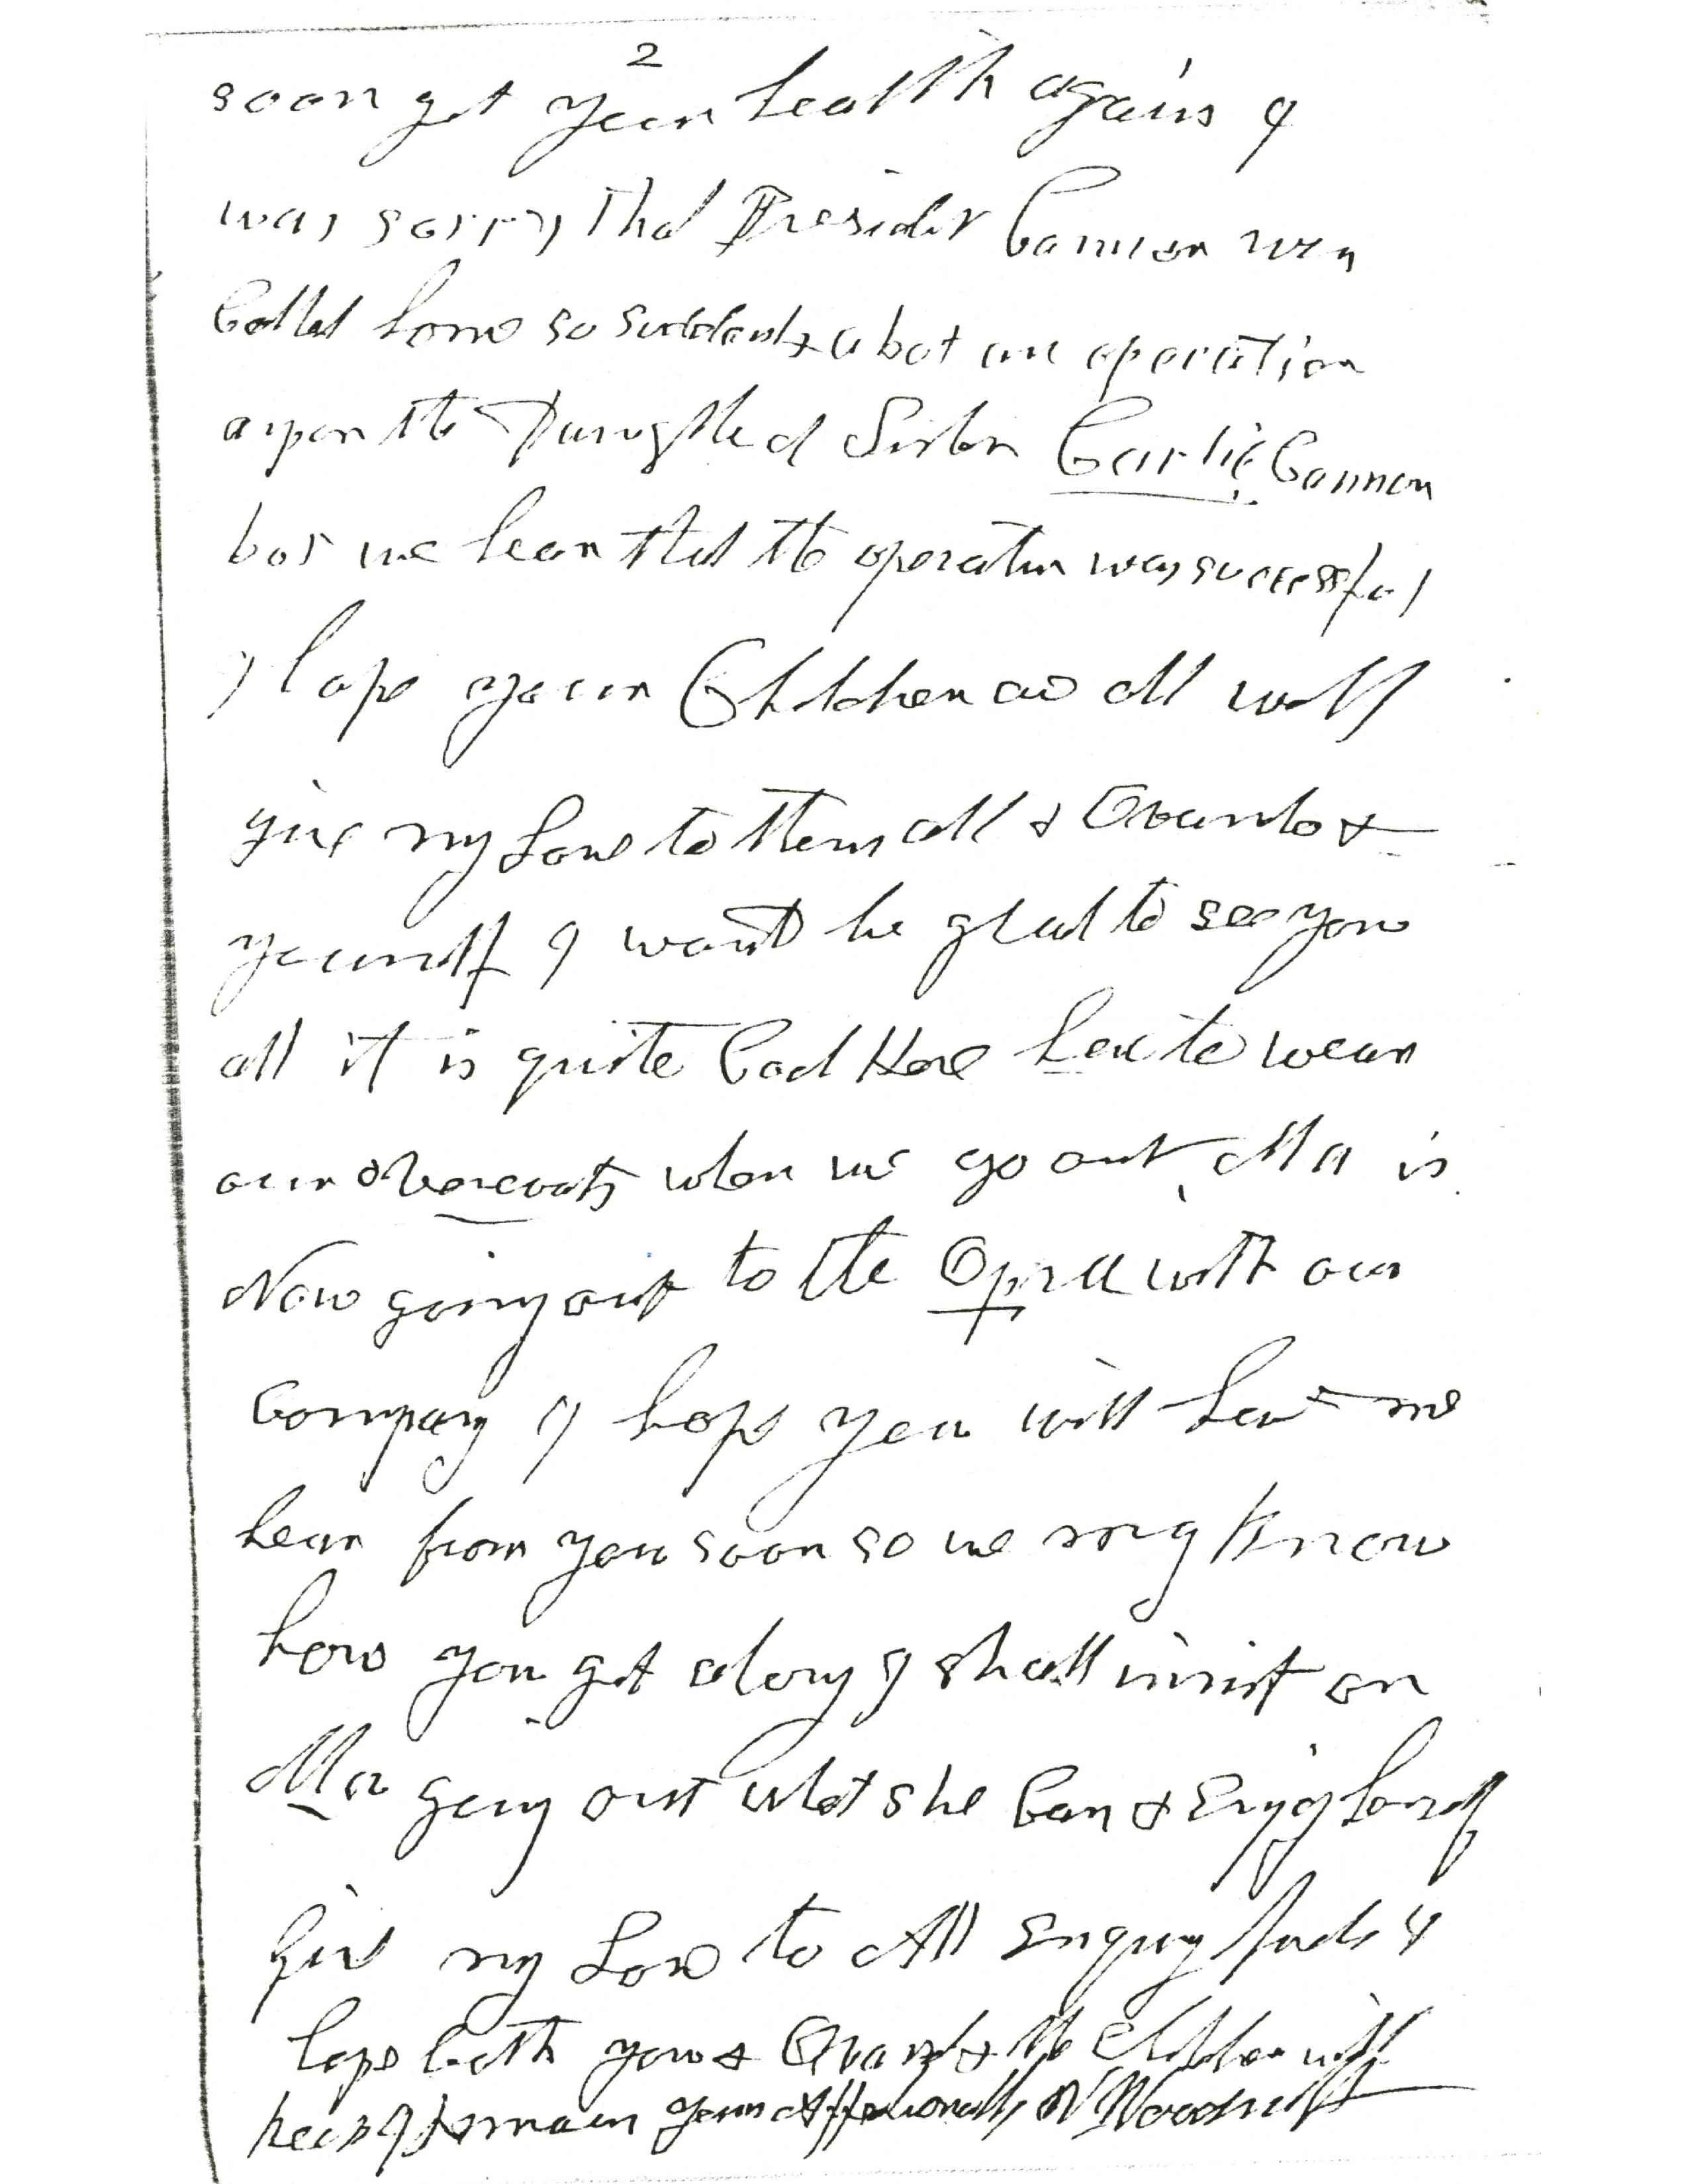 2
soon get your health again I
was sorry that President Cannon was
Called home so suddenly about an operation
upon the Daughter of Sister Carlie Cannon
but we hear that the operation was successful
I hope your Children are all well
give my Love to them all & Ovando &
yourself I would be glad to see you
all it is quite Cool Here have to wear
our overcoats when we go out Ma is
Now going out to the Opera with our
Company I hope you will let me
hear from you soon so we may know
how you get along I shall insist on
Ma going out what she Can & Enjoy hersf
Give my Love to All Enquiry friends &
hope both you & Ovando & the Children will
keep I remain yours Affectionately W Woodruff